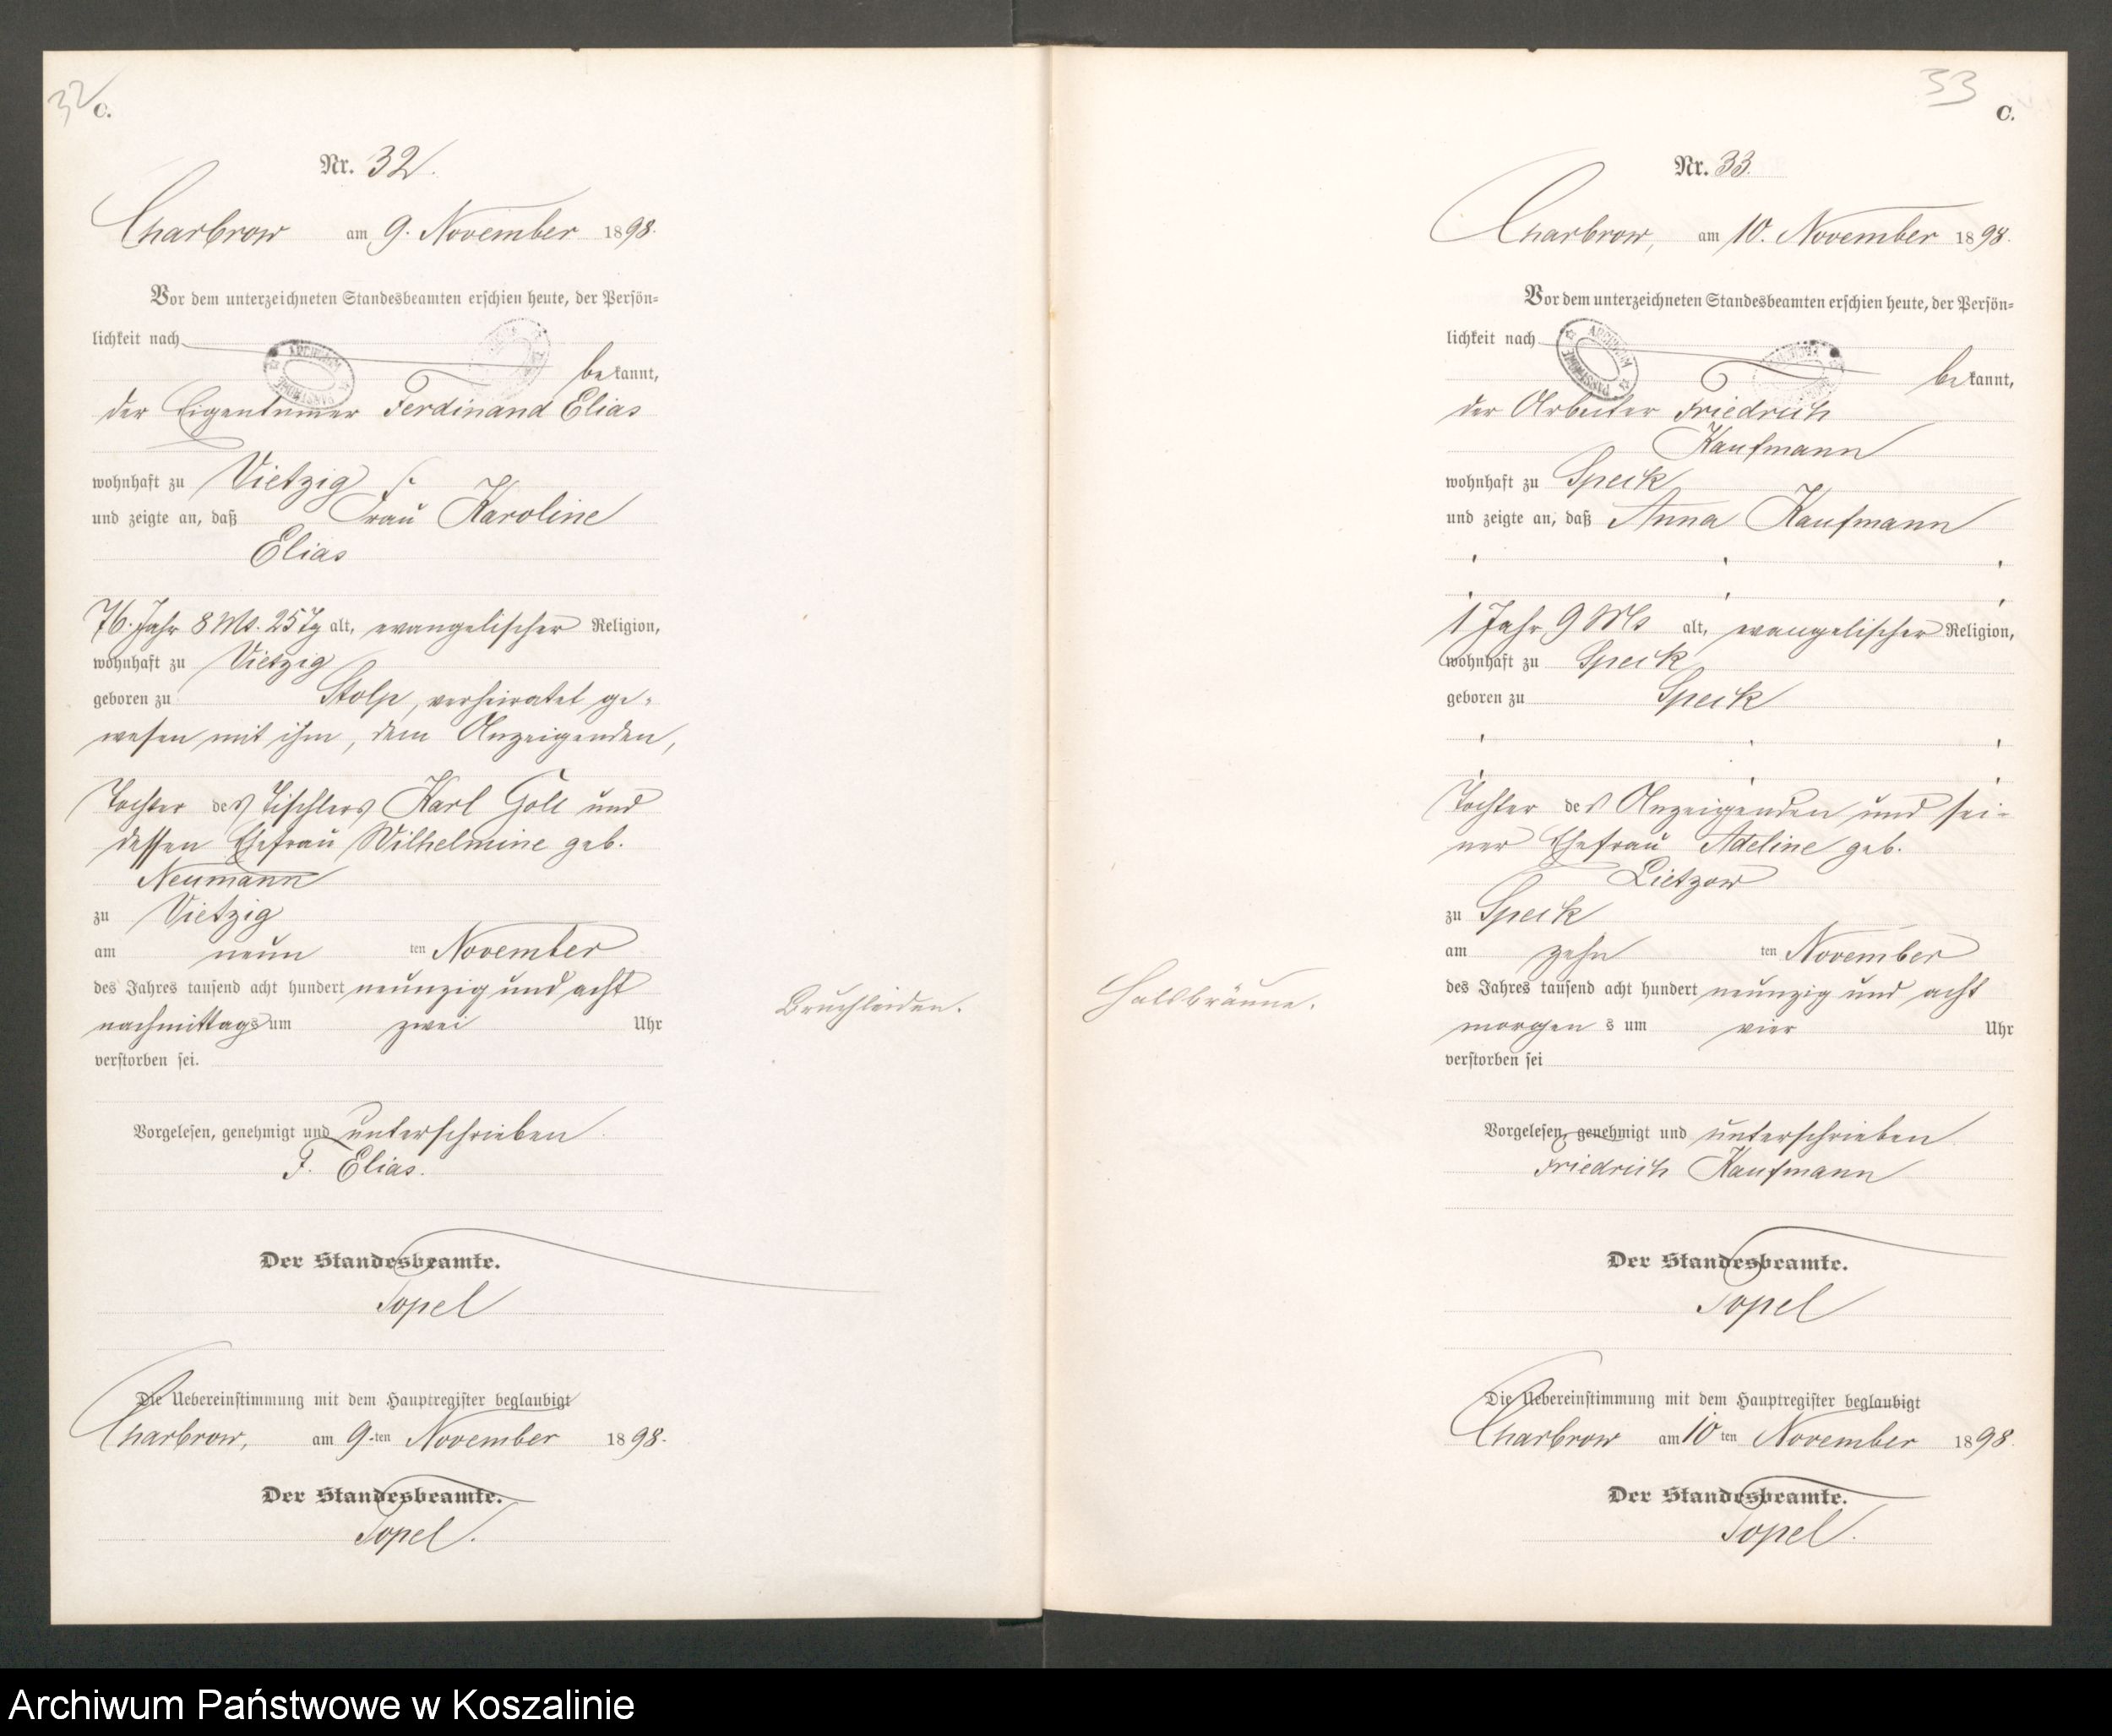 32
C.
Nr. 32.
Charbrow am 9. November 1898.
Vor dem unterzeichneten Standesbeamten erschien heute, der Persön-
lichkeit nach
bekannt,
der Eigentumer Ferdinand Elias
wohnhaft zu Vietzig
und zeigte an, daß Frau Karoline
Elias
76 Jahr 8 Mt. 25 Tg alt, evangelischer Religion,
wohnhaft zu Vietzig
geboren zu Stolp, verheiratet ge-
wesen mit ihm, dem Anzeigenden,
Tochter des Tischlers Karl Goll und
dessen Ehefrau Wilhelmine geb.
Neumann
zu Vietzig
am neun ten November
des Jahres tausend acht hundert neunzig und acht
nachmittags um zwei Uhr
verstorben sei.
Bruchleiden.
Vorgelesen, genehmigt und unterschrieben
F. Elias.
Der Standesbeamte.
Topel
Die Uebereinstimmung mit dem Hauptregister beglaubigt
Charbrow, am 9.ten November 1898.
Der Standesbeamte.
Topel.
33
C.
Nr. 33.
Charbrow, am 10. November 1898.
Vor dem unterzeichneten Standesbeamten erschien heute, der Persön-
lichkeit nach
bekannt,
der Arbeiter Friedrich
Kaufmann
wohnhaft zu Speck
und zeigte an, daß Anna Kaufmann
1 Jahr 9 Mt alt, evangelischer Religion,
wohnhaft zu Speck
geboren zu Speck
Tochter des Anzeigenden und sei-
ner Ehefrau Adeline geb.
Lietzow
zu Speck
am zehn ten November
des Jahres tausend acht hundert neunzig und acht
morgens um vier Uhr
verstorben sei
Halsbräune.
Vorgelesen, genehmigt und unterschrieben
Friedrich Kaufmann
Der Standesbeamte.
Topel
Die Uebereinstimmung mit dem Hauptregister beglaubigt
Charbrow am 10 ten November 1898.
Der Standesbeamte.
Topel.
Archiwum Państwowe w Koszalinie